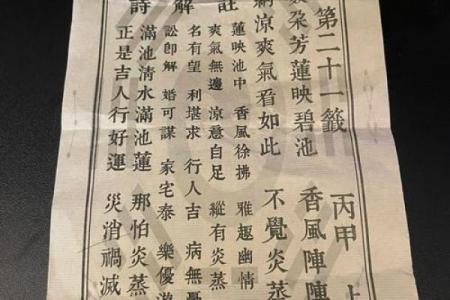 第二十一籤 丙甲 上
朵芳蓮映碧池 香風陣陣
涼爽氣看如此 不覺炎蒸
註
蓮映池中 香風徐拂 雅趣幽情
爽氣無邊 涼意自足 縱有炎蒸
解
名有望 利堪求 行人吉 病無
訟即解 婚可謀 家宅泰 樂優游
詩
滿池清水滿池蓮 那怕炎蒸
正是吉人行好運 災消禍滅